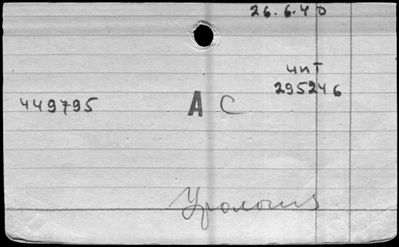 26.6.40
чит
295246
449795 А С
Урология